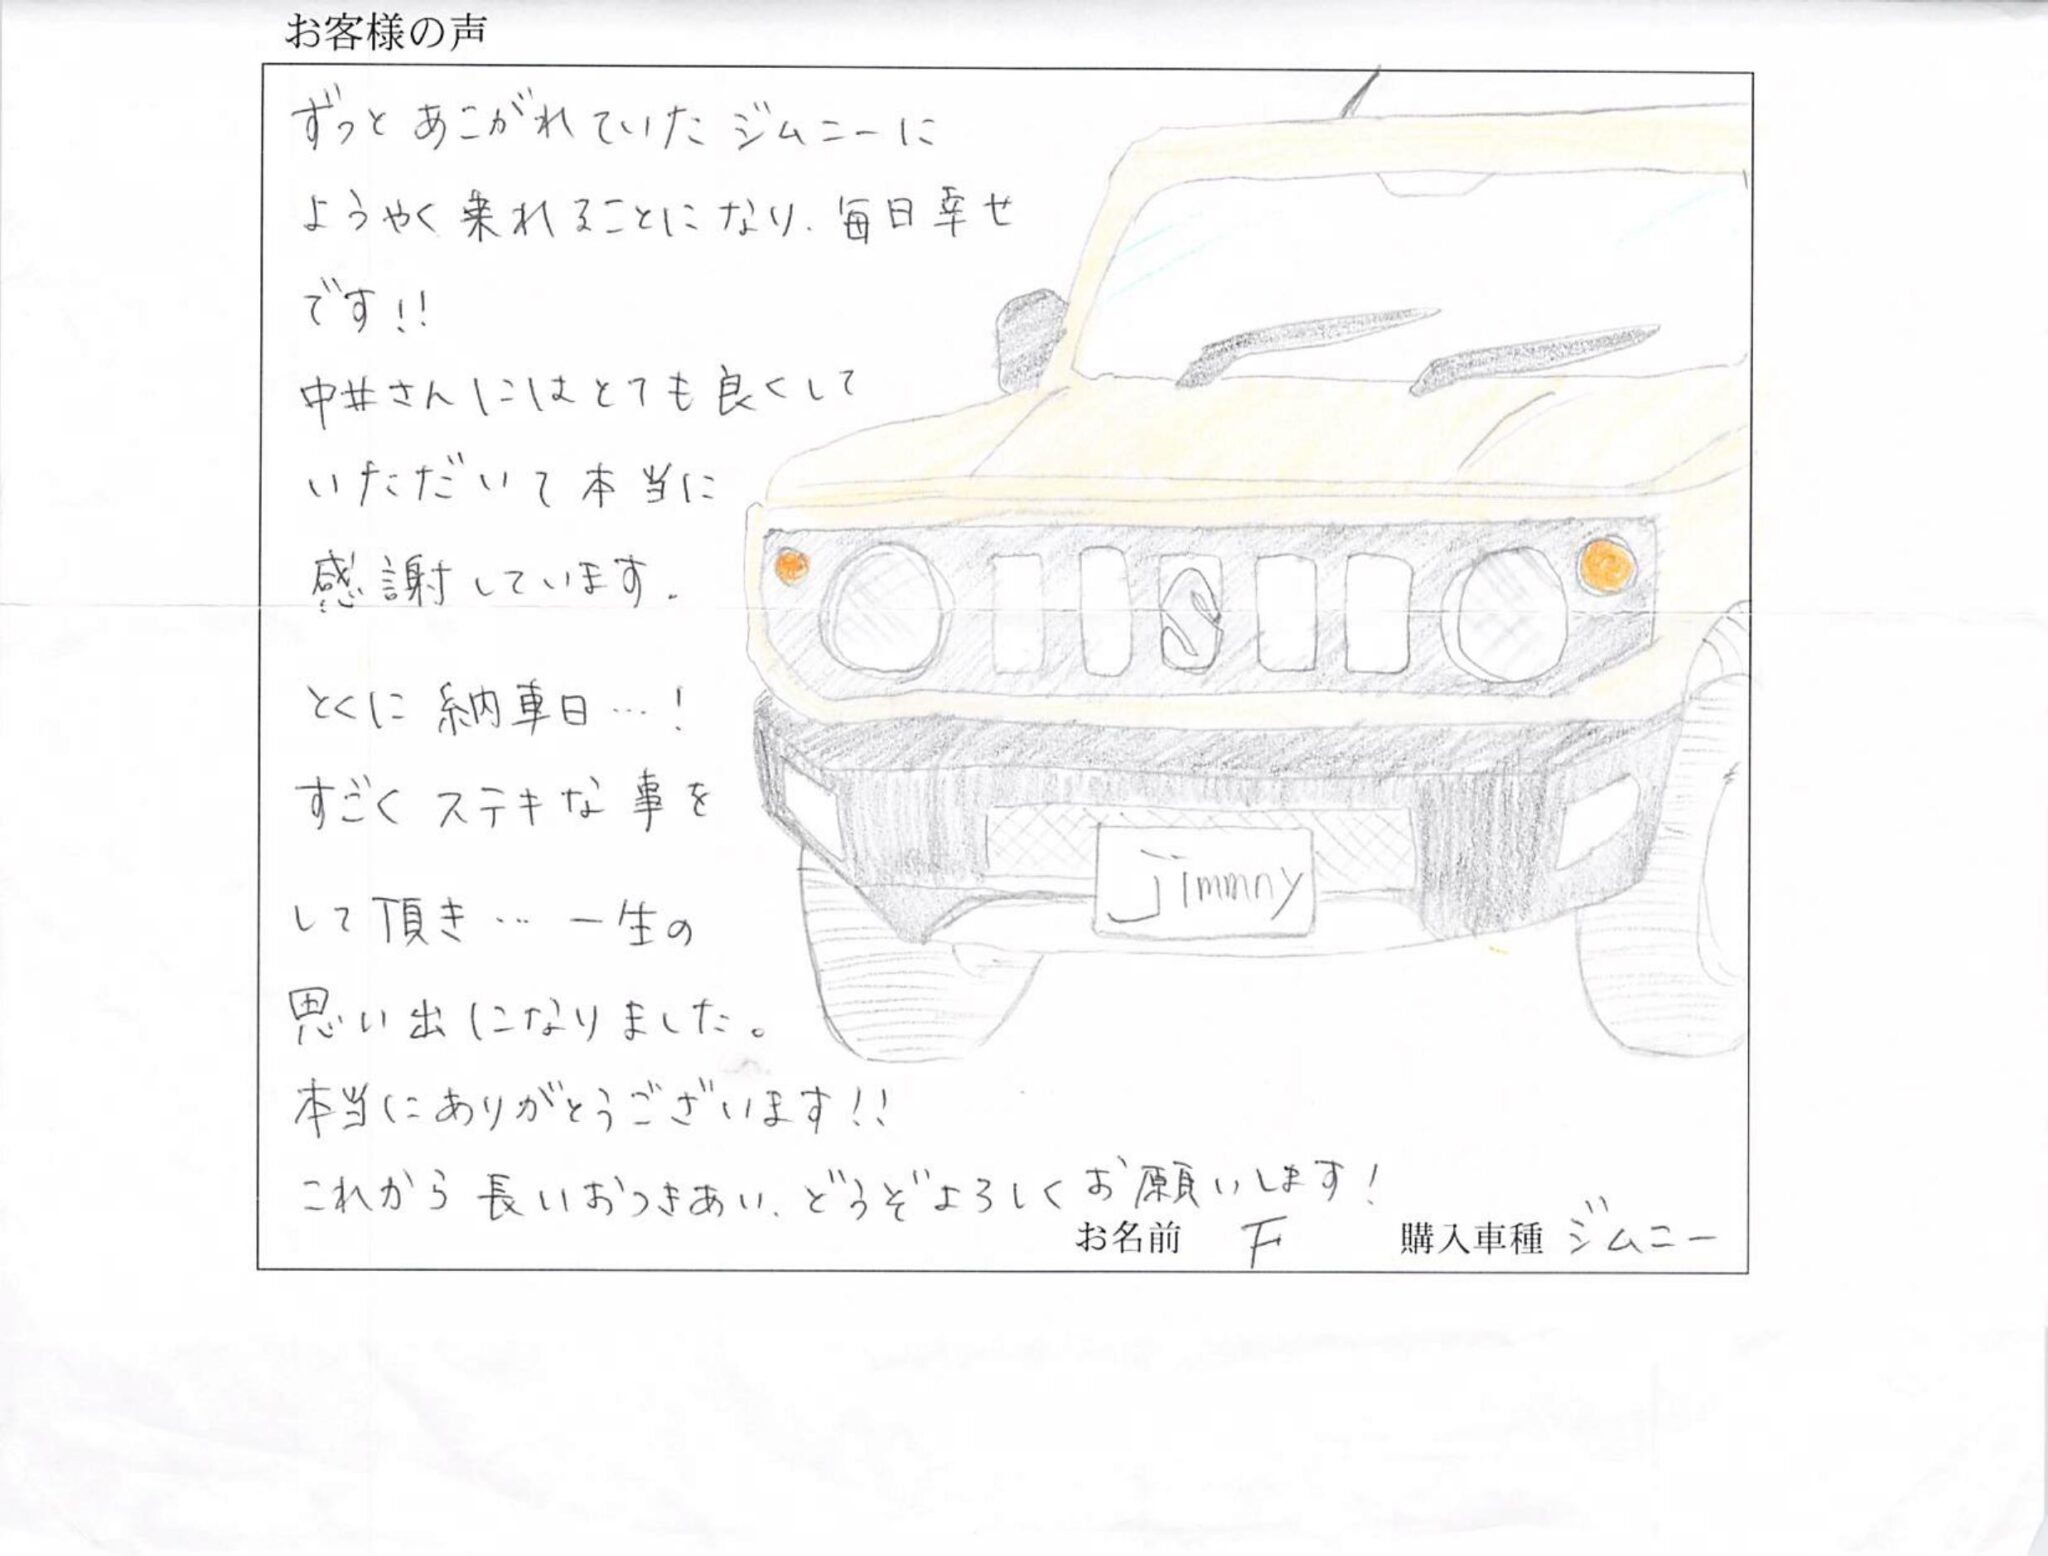 お客様の声
ずっとあこがれていたジムニーに
ようやく乗れることになり、毎日幸せ
です!!
中井さんにはとても良くして
いただいて本当に
感謝しています。
とくに納車日…!
すごくステキな事を
して頂き…一生の
思い出になりました。
本当にありがとうございます!!
これから長いおつきあい、どうぞよろしくお願いします!
お名前 F 購入車種 ジムニー
S
jimmny